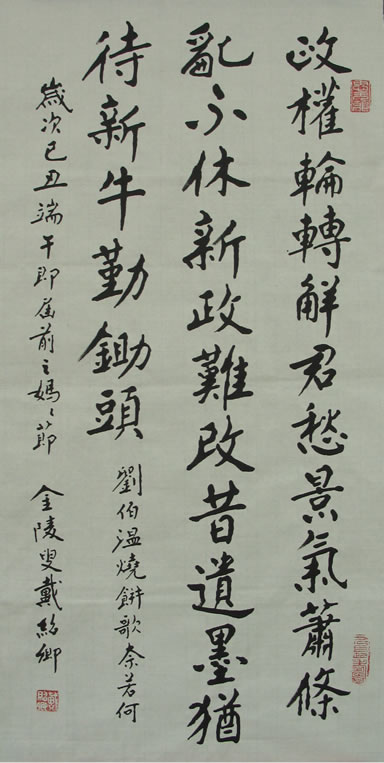 政權輪轉解君愁景氣蕭條
亂不休新政難改昔遺墨猶
待新牛勤鋤頭
劉伯溫燒餅歌奈若何
歲次己丑端午即屆前之媽々節
金陵叟戴紹卿